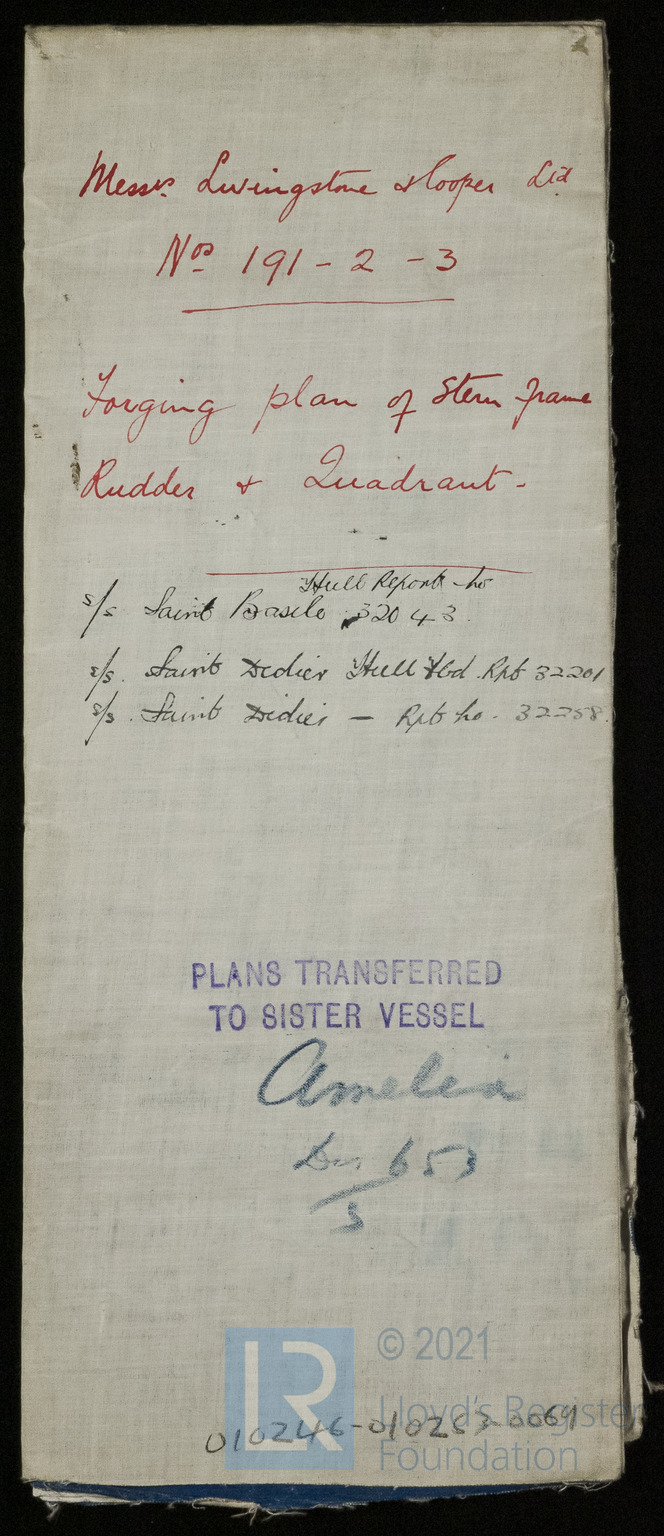 Messrs Livingstone & Cooper Ltd
Nos 191 - 2 - 3
Forging plan of Stern frame
Rudder & Quadrant -
Hull Report No
s/s Saint Basile 32043.
s/s. Saint Didier Hull Rpt 32201
s/s. Saint Didier — Rpt No. 32258.
PLANS TRANSFERRED
TO SISTER VESSEL
Amelia
653
5
© 2021
LR
Lloyd's Register
Foundation
010246-010253-0069